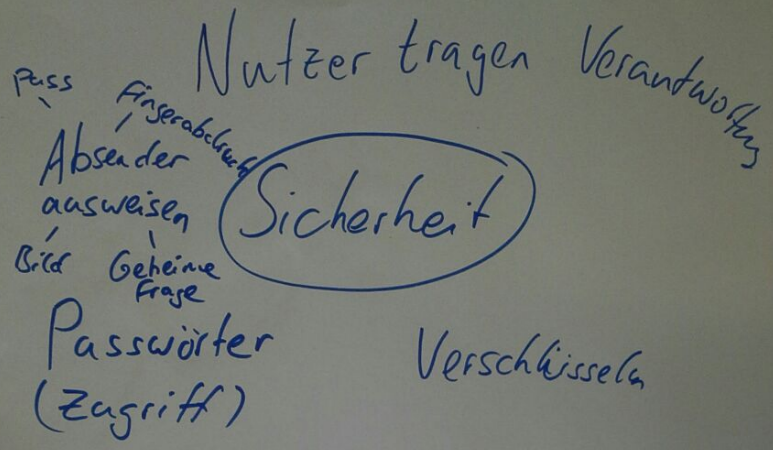 Nutzer tragen Verantwortung
Pass
Fingerabdruck
Absender
ausweisen
Bild
Geheime
Frage
Sicherheit
Passwörter
(Zugriff)
Verschlüsseln